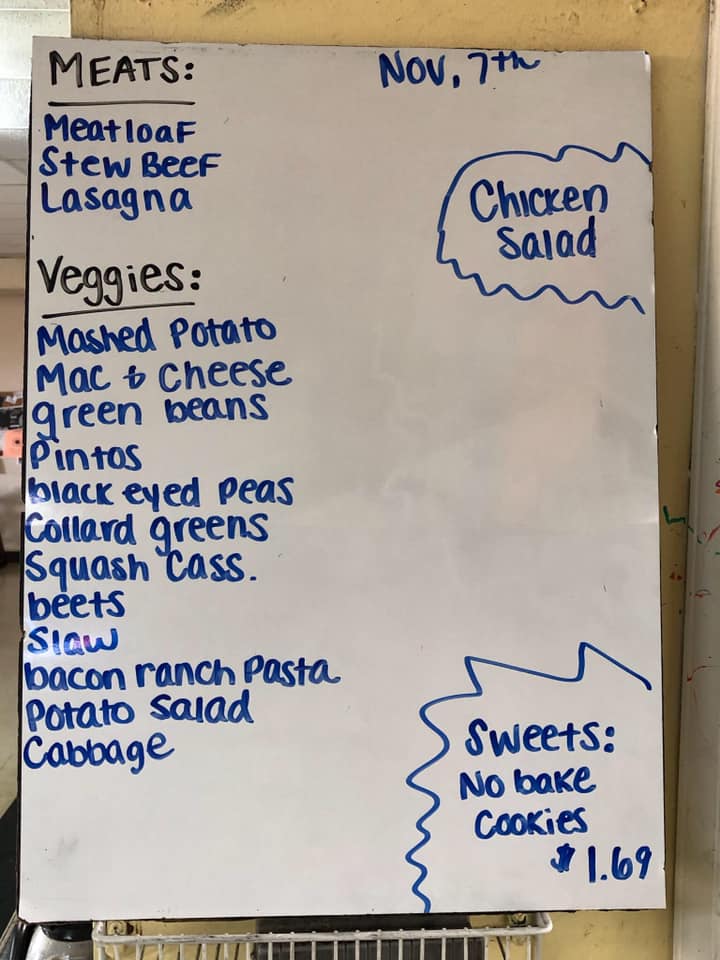 MEATS:
Nov. 7th
Meatloaf
Stew Beef
Lasagna
Chicken
Salad
Veggies:
Mashed Potato
Mac & Cheese
green beans
Pintos
black eyed Peas
Collard greens
Squash Cass.
beets
Slaw
bacon ranch Pasta
Potato Salad
Cabbage
Sweets:
No bake
Cookies
$1.69